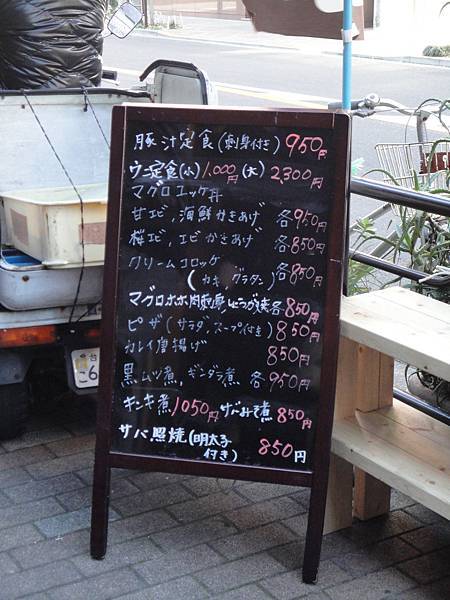 豚汁定食(刺身付き) 950円
ウニ定食(小)1,000円(大)2,300円
マグロユッケ丼
甘エビ、海鮮かきあげ 各950円
桜エビ、エビかきあげ 各850円
クリームコロッケ
(カキ、グラタン) 各850円
マグロホホ肉 しょうが焼 各850円
ピザ (サラダ、スープ付き) 850円
カレイ唐揚げ 850円
黒ムツ煮、ギンダラ煮 各950円
キンキ煮1050円 サバみそ煮850円
サバ照焼(明太子
付き) 850円
台
こ6